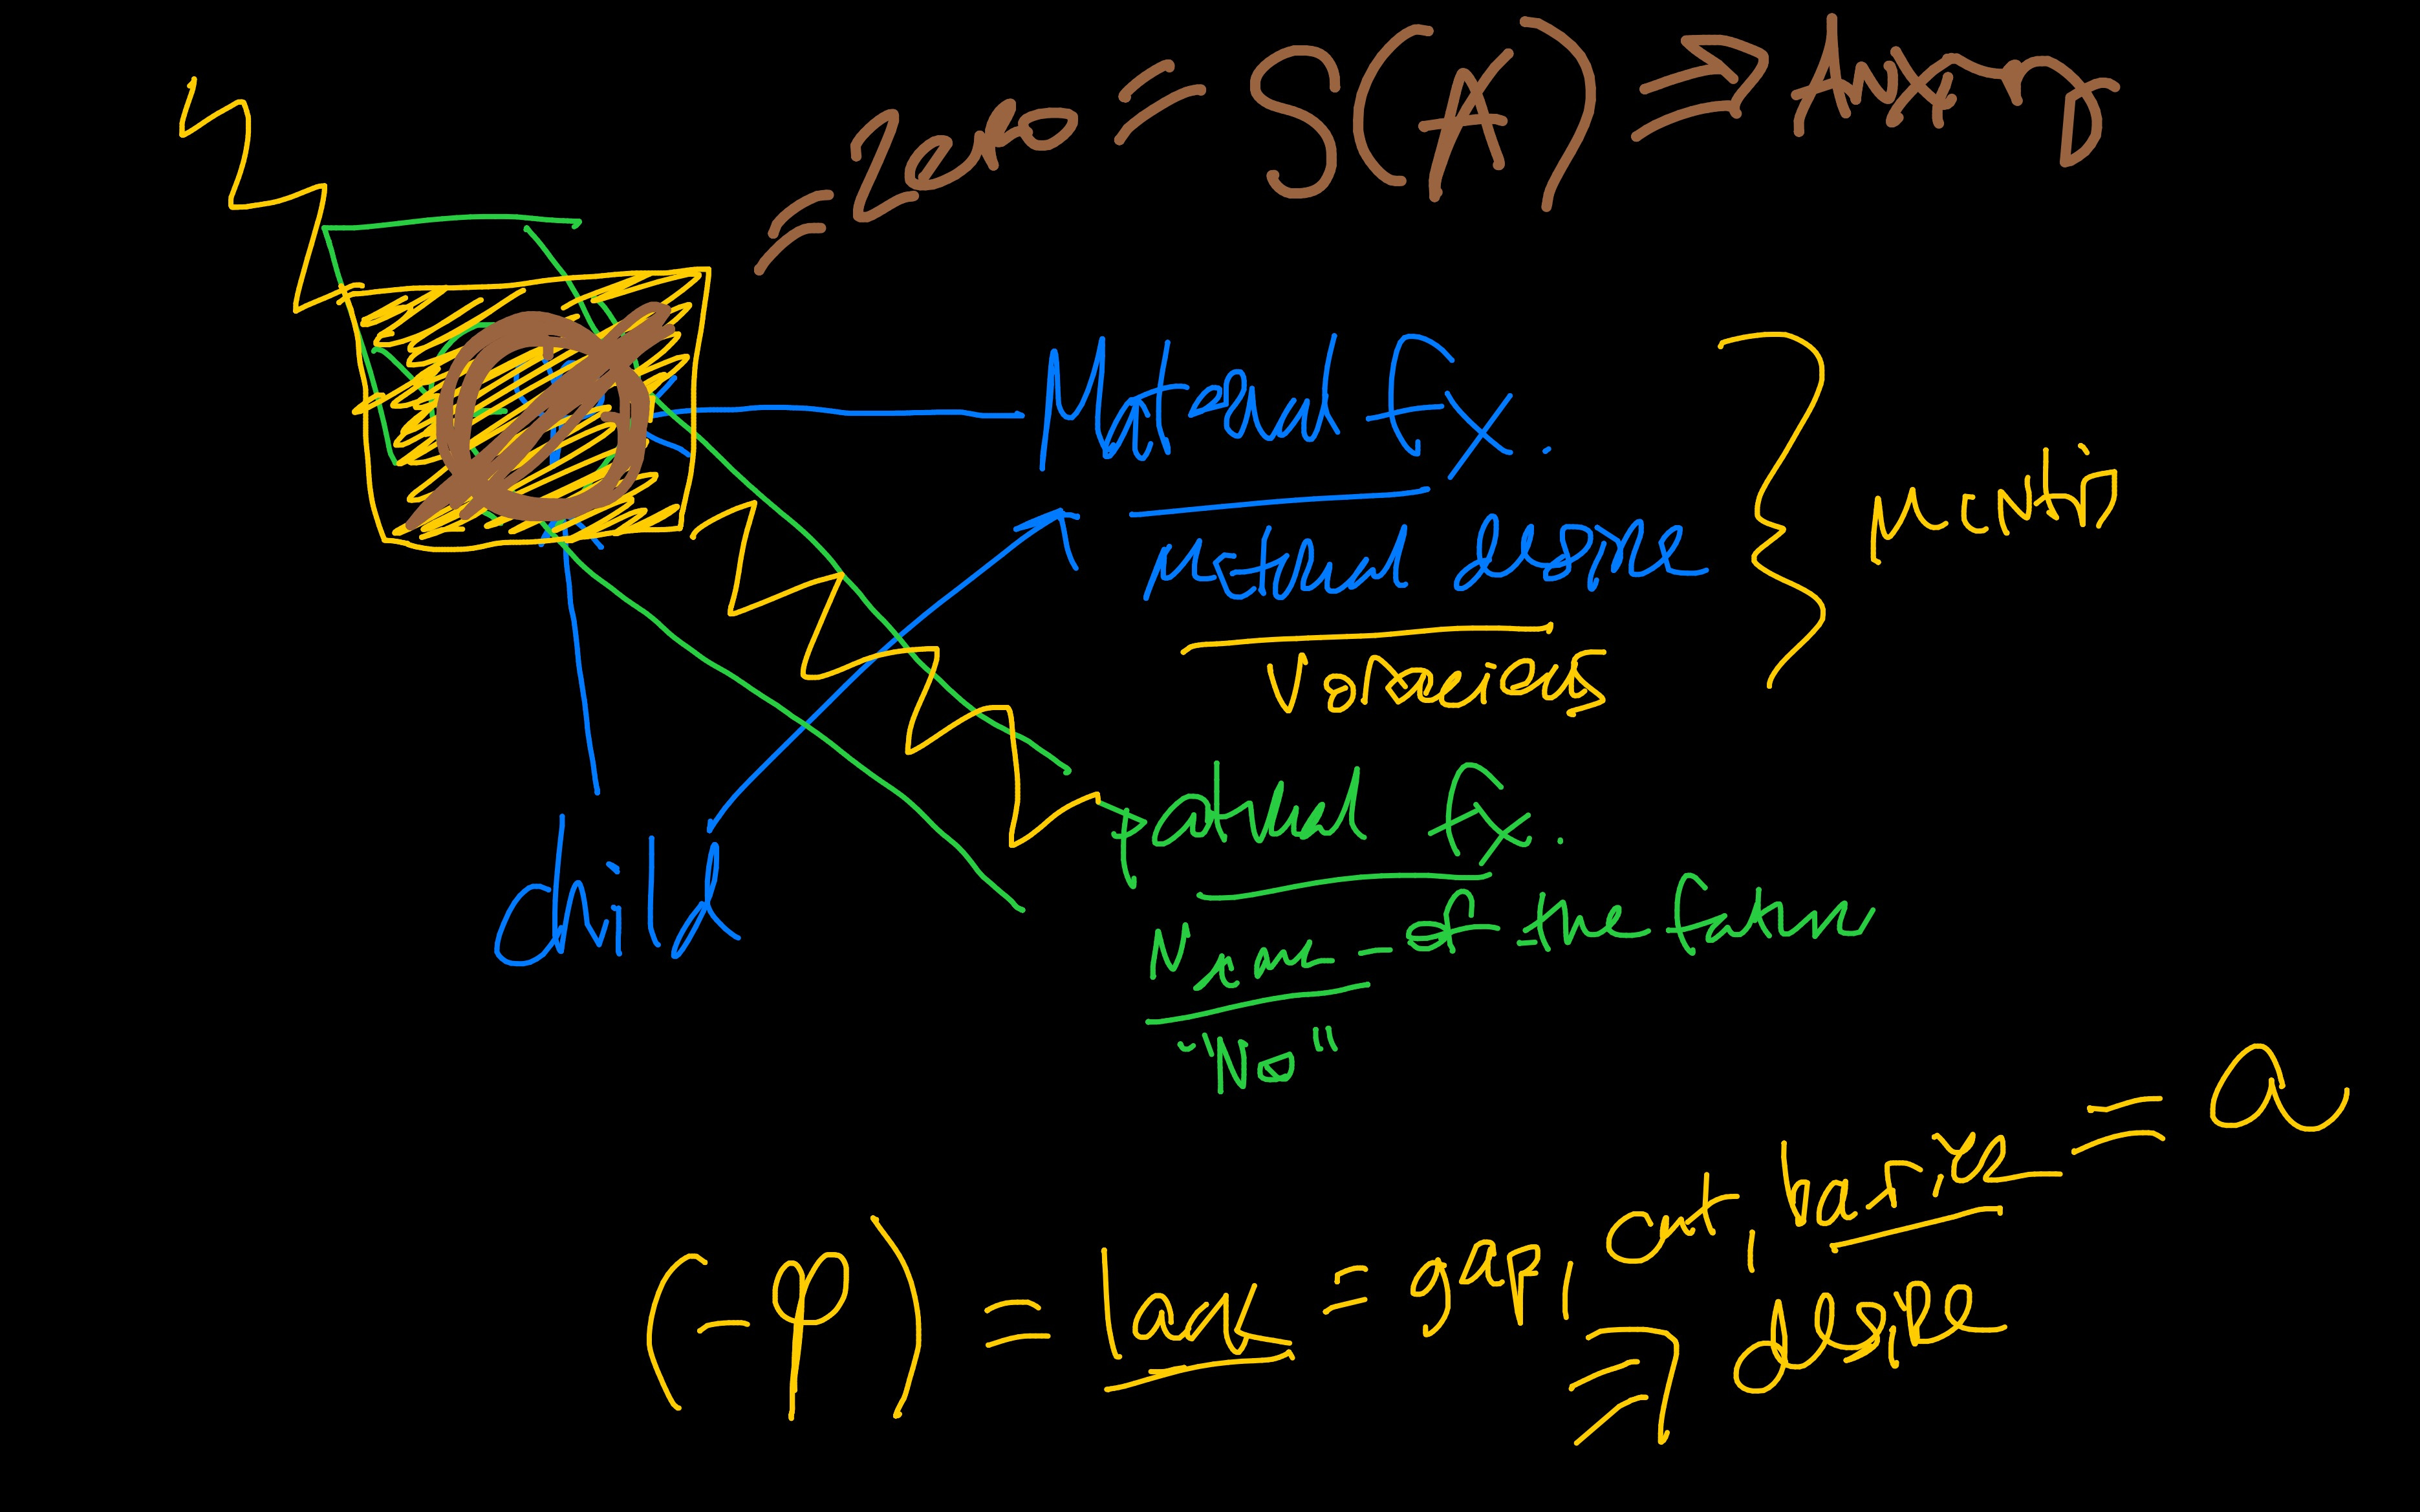 = Zero = S(Ⱥ) ⇒ Anxiety
Maternal fx.
maternal desire
Voracious
Mantis
child
paternal fx.
Name-of-the father
"No"
(-φ) = lack = gap, cut, barrier = a
⇒ desire